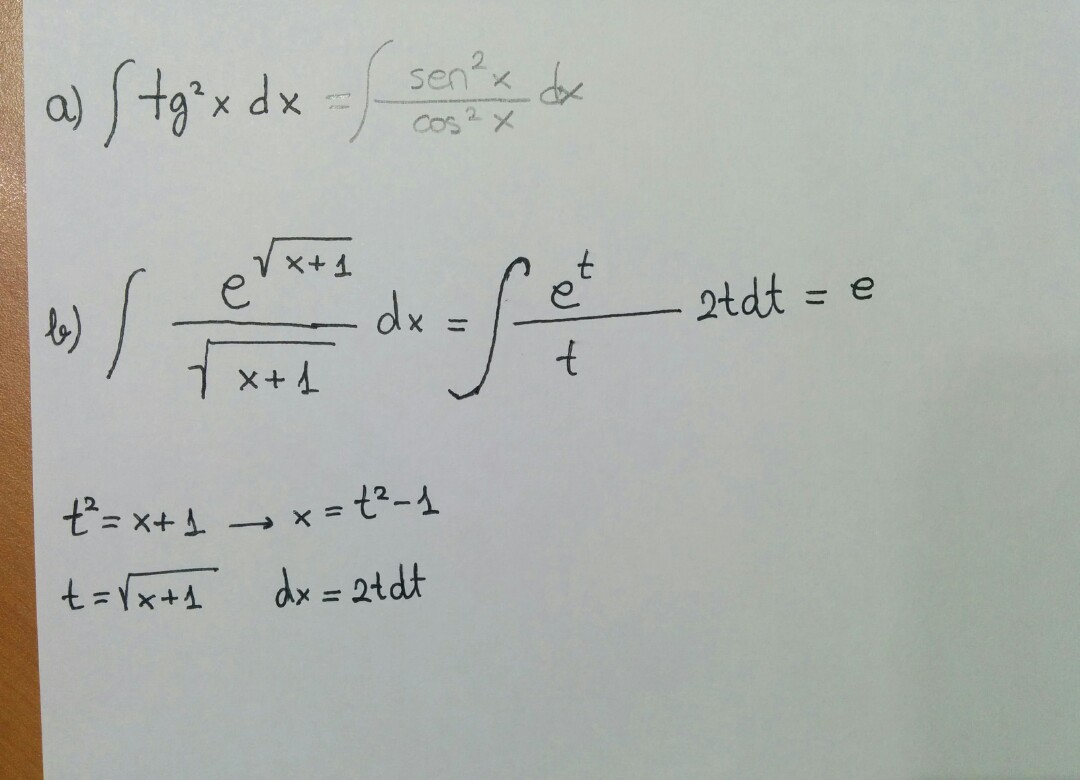 a) ∫ tg²x dx = ∫ sen²x / cos²x dx
b) ∫ e^√(x+1) / √(x+1) dx = ∫ e^t / t 2tdt = e
t² = x+1 → x = t²-1
t = √(x+1) dx = 2tdt